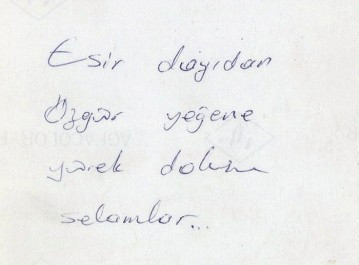 Esir dayıdan
Özgür yeğene
yürek dolusu
selamlar...